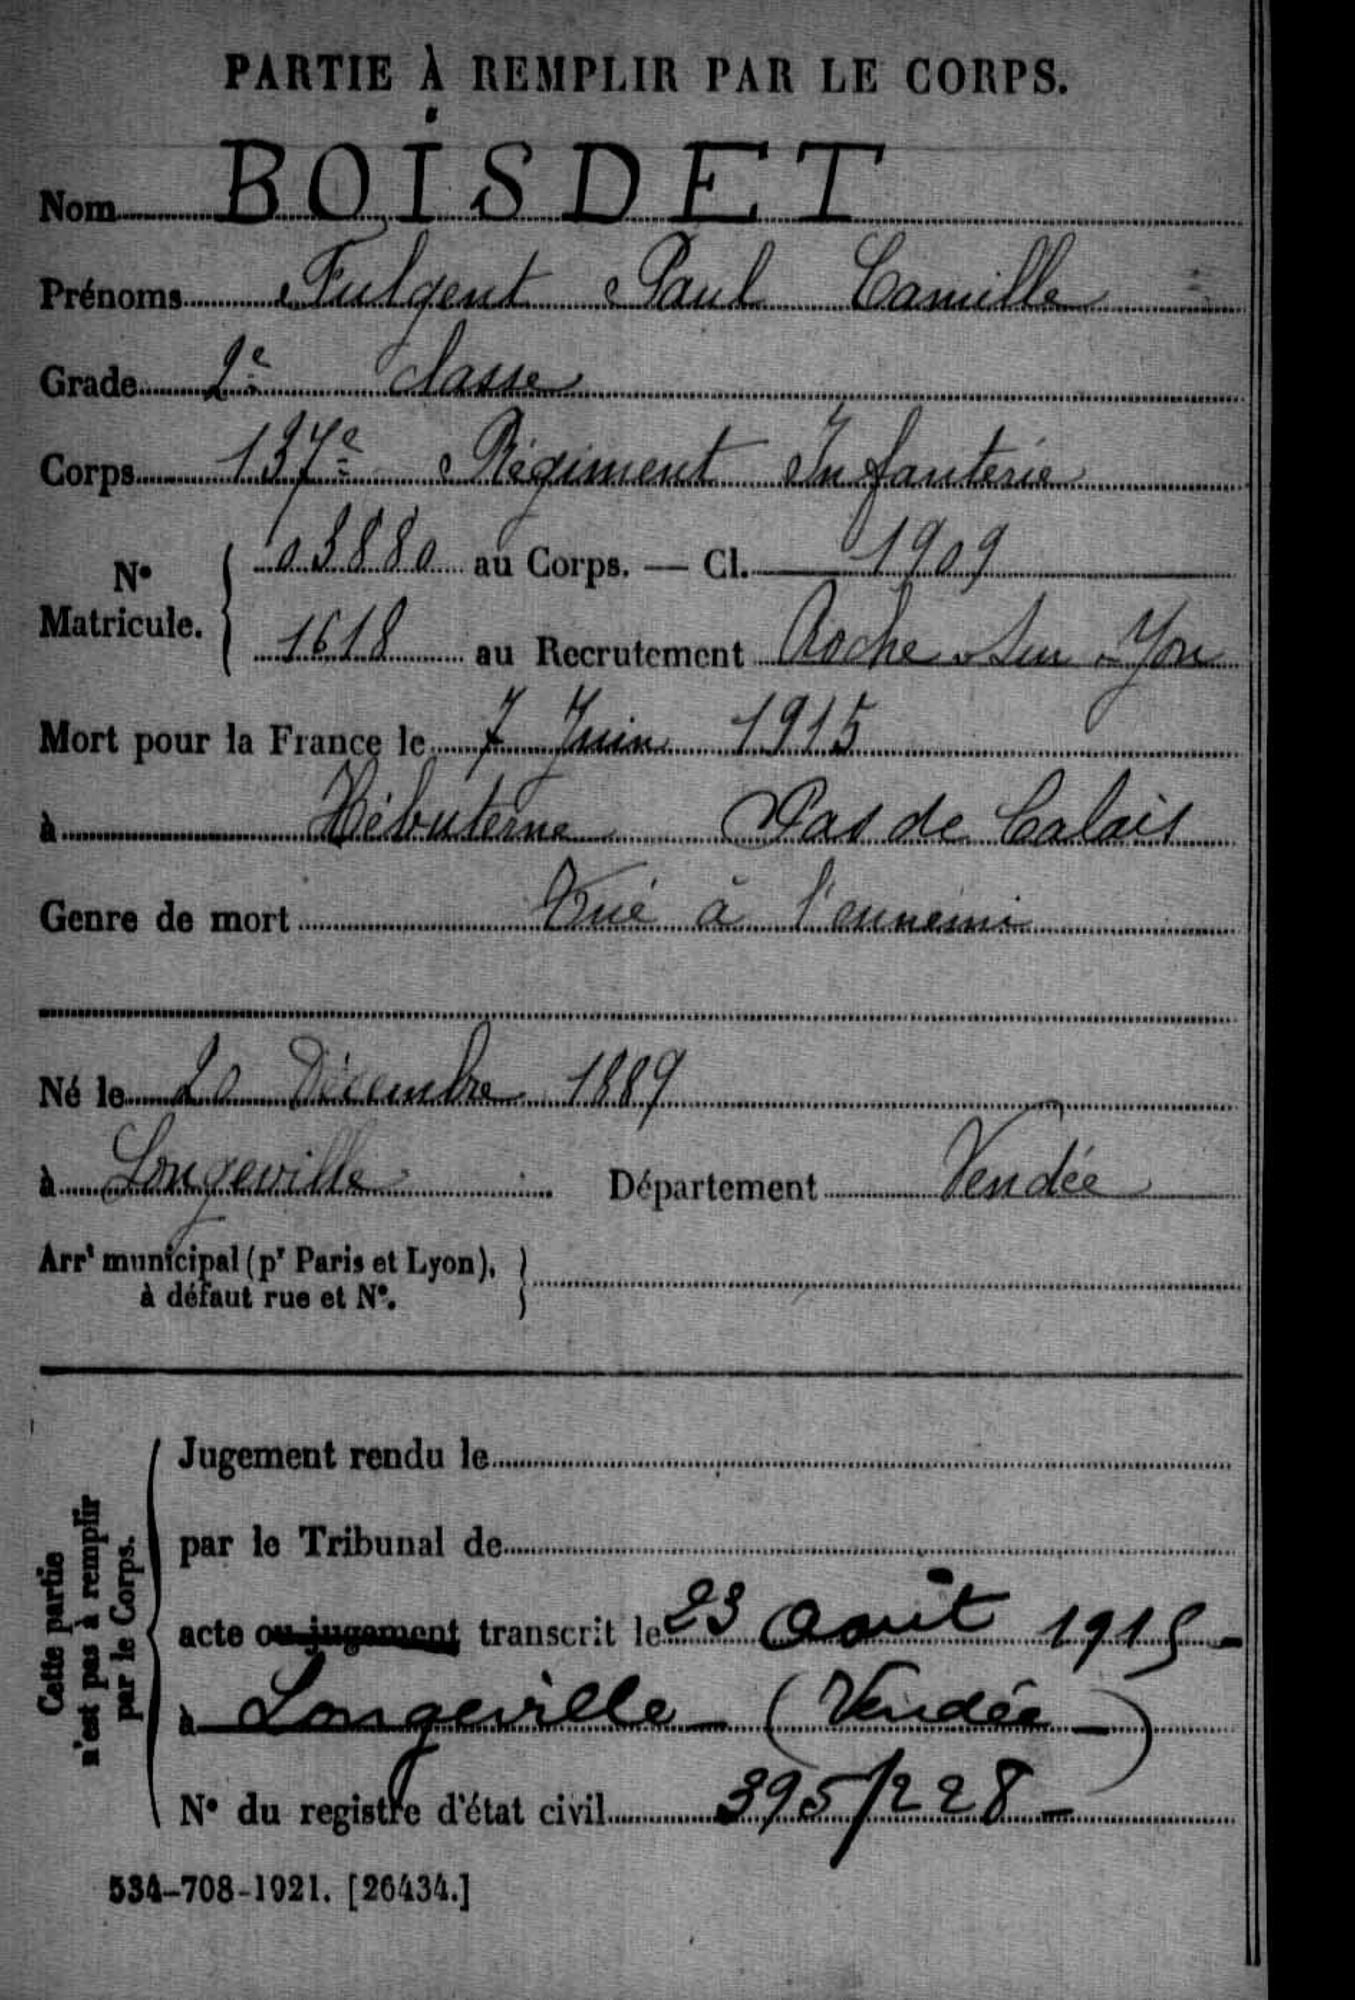 PARTIE À REMPLIR PAR LE CORPS.
Nom BOISDET
Prénoms Fulgent Paul Camille
Grade 2e classe
Corps 137e Régiment Infanterie
No Matricule. { 03880 au Corps. — Cl. 1909
1618 au Recrutement Roche-sur-Yon
Mort pour la France le 7 Juin 1915
à Hébuterne Pas de Calais
Genre de mort Tué à l'ennemi
Né le 20 Décembre 1889
à Longeville Département Vendée
Arrt municipal (pr Paris et Lyon), }
à défaut rue et No.
Cette partie
n'est pas à remplir
par le Corps.
Jugement rendu le
par le Tribunal de
acte ou jugement transcrit le 23 Août 1915 -
à Longeville - (Vendée -)
No du registre d'état civil 395/228 -
534-708-1921. [26434.]